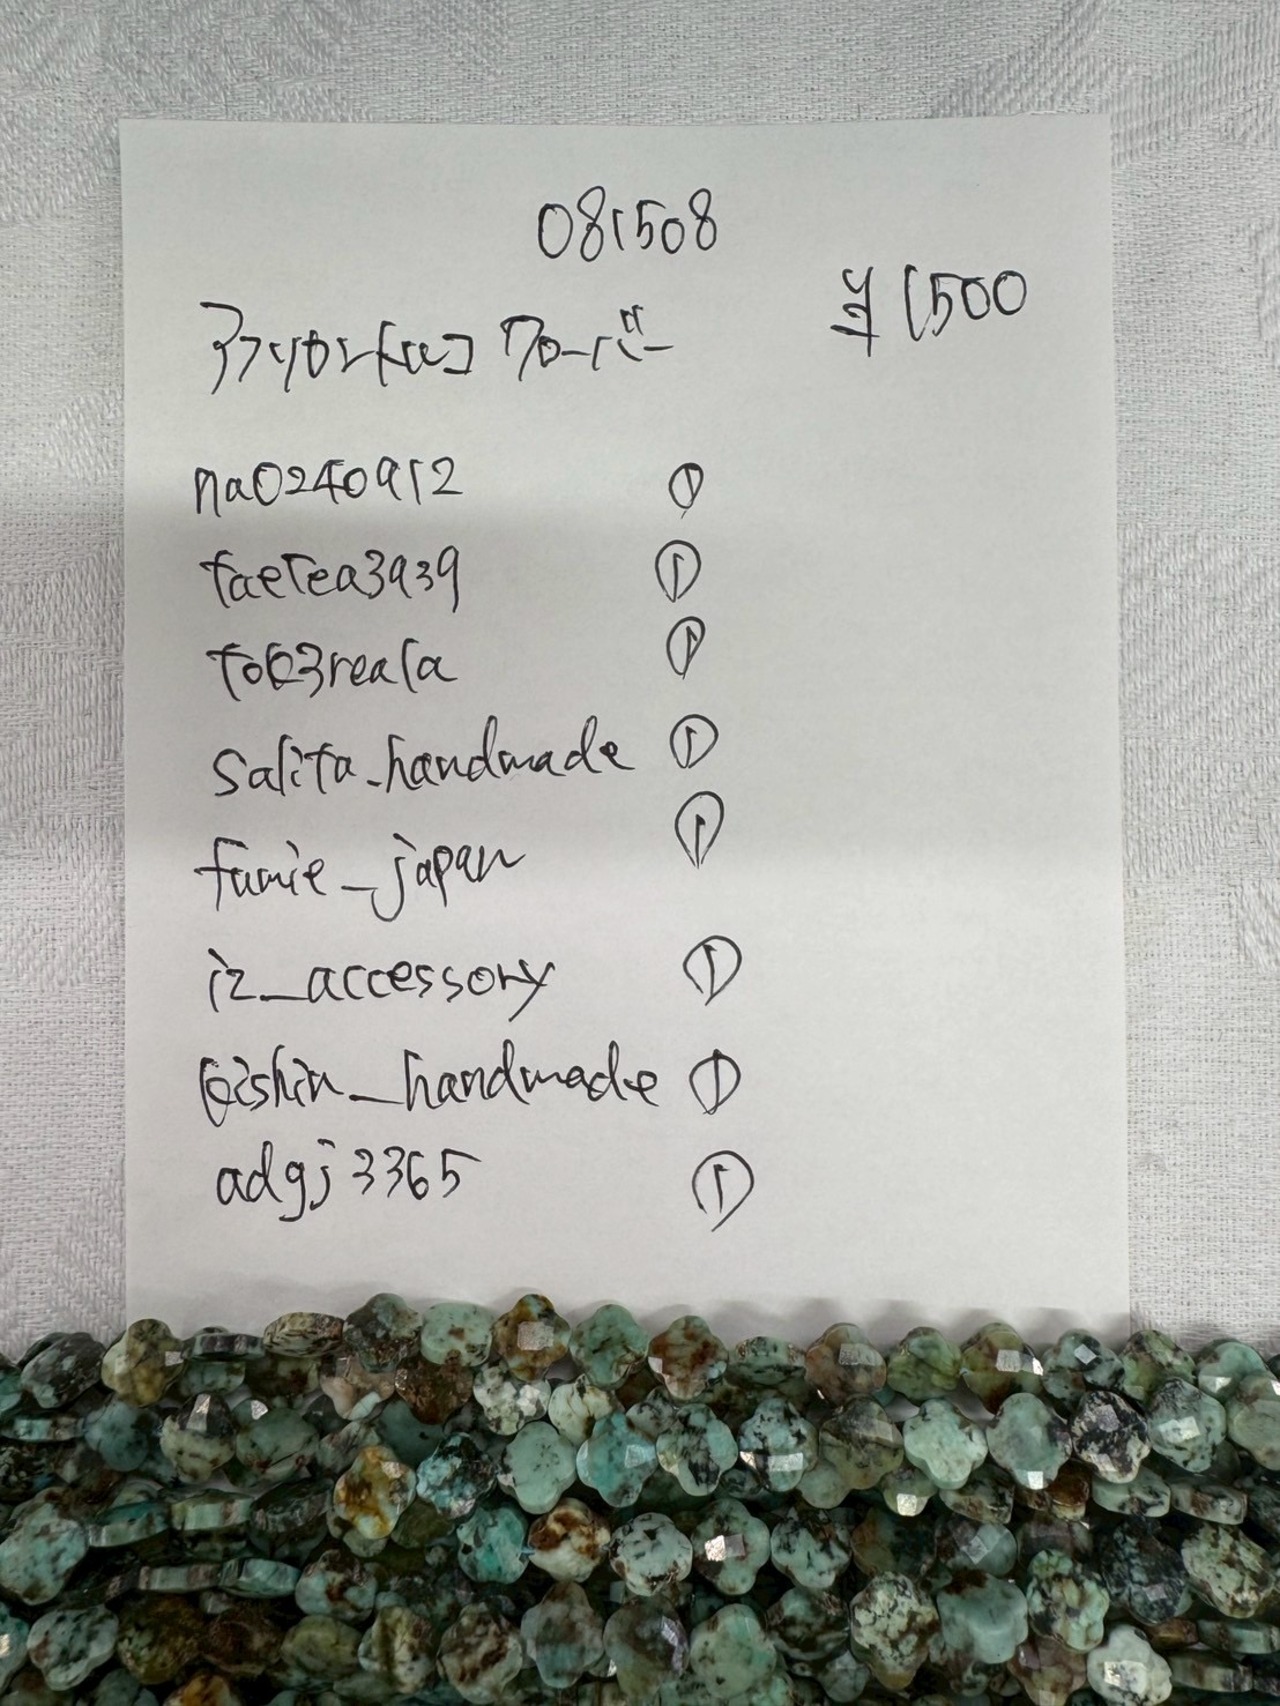 081508
¥1500
アフリカントルコ クローバー
na0240912 ①
taerea3939 ①
to63reala ①
salita_handmade ①
fumie_japan ①
iz_accessory ①
keishin_handmade ①
adgj3365 ①